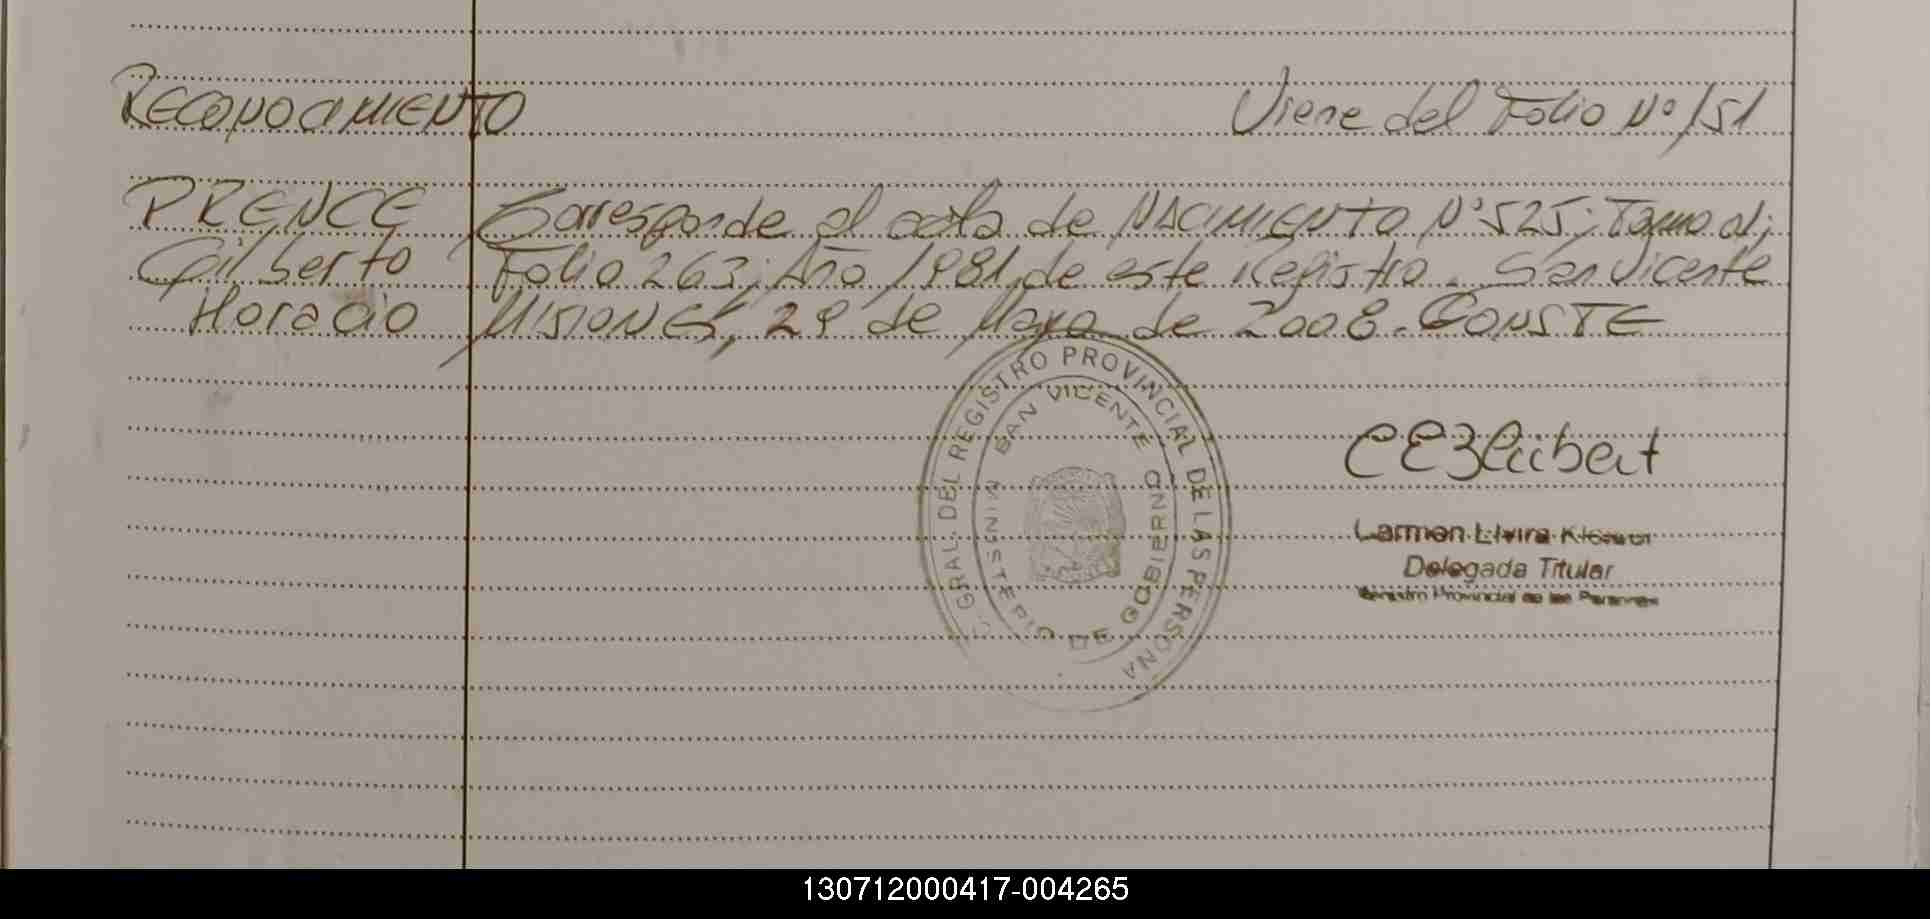 RECONOCIMIENTO
Viene del Folio Nº 151
PRENCE
Gilberto
Horacio
Corresponde al acta de NACIMIENTO Nº 525; Tomo al;
Folio 263; Año 1981, de este Registro. San Vicente
MISIONES, 29 de Mayo de 2008. CONSTE
GRAL. DEL REGISTRO PROVINCIAL DE LAS PERSONA
SAN VICENTE
MINISTERIO DE GOBIERNO
Carmen Elvira
Delegada Titular
Registro Provincial de las Personas
130712000417-004265